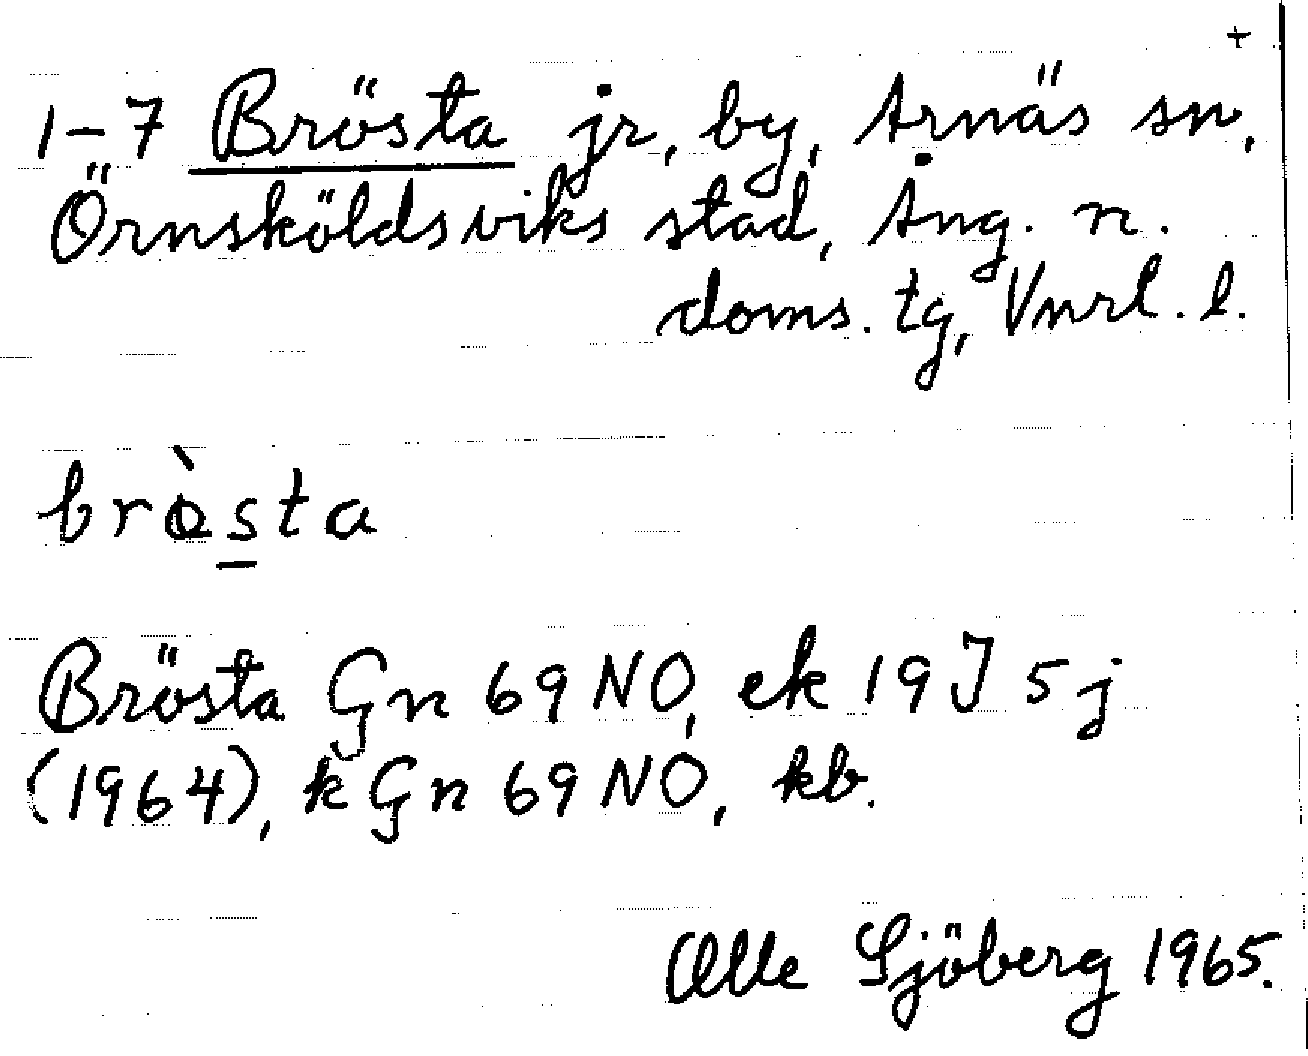 +
1-7 Brösta jr, by, Arnäs sn,
Örnsköldsviks stad, Ång. n.
doms. tg, Vnrl. l.
bròsta
Brösta Gn 69 NO, ek 19 J 5 j
(1964), k Gn 69 NO, kb.
Olle Sjöberg 1965.